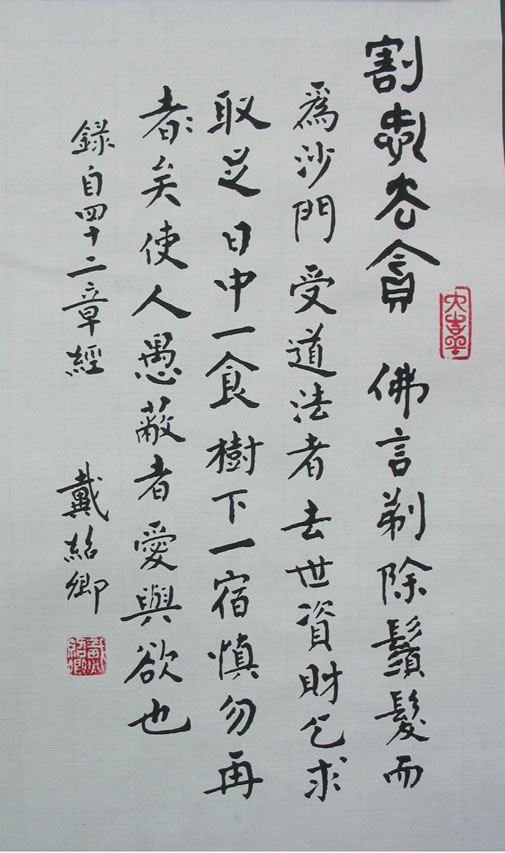 割愛去貪 佛言剃除鬚髮而
爲沙門受道法者去世資財乞求
取足日中一食樹下一宿慎勿再
者矣使人愚蔽者愛與欲也
錄自四十二章經 戴紹卿